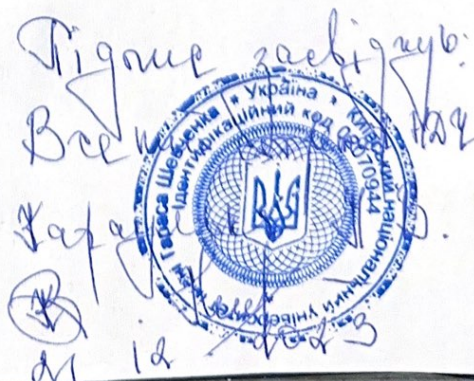 Підпис засвідчую:
Вчен
НДЧ
Кара
21 12 2023
* Україна * Київський національний університет імені Тараса Шевченка
Ідентифікаційний код 02070944